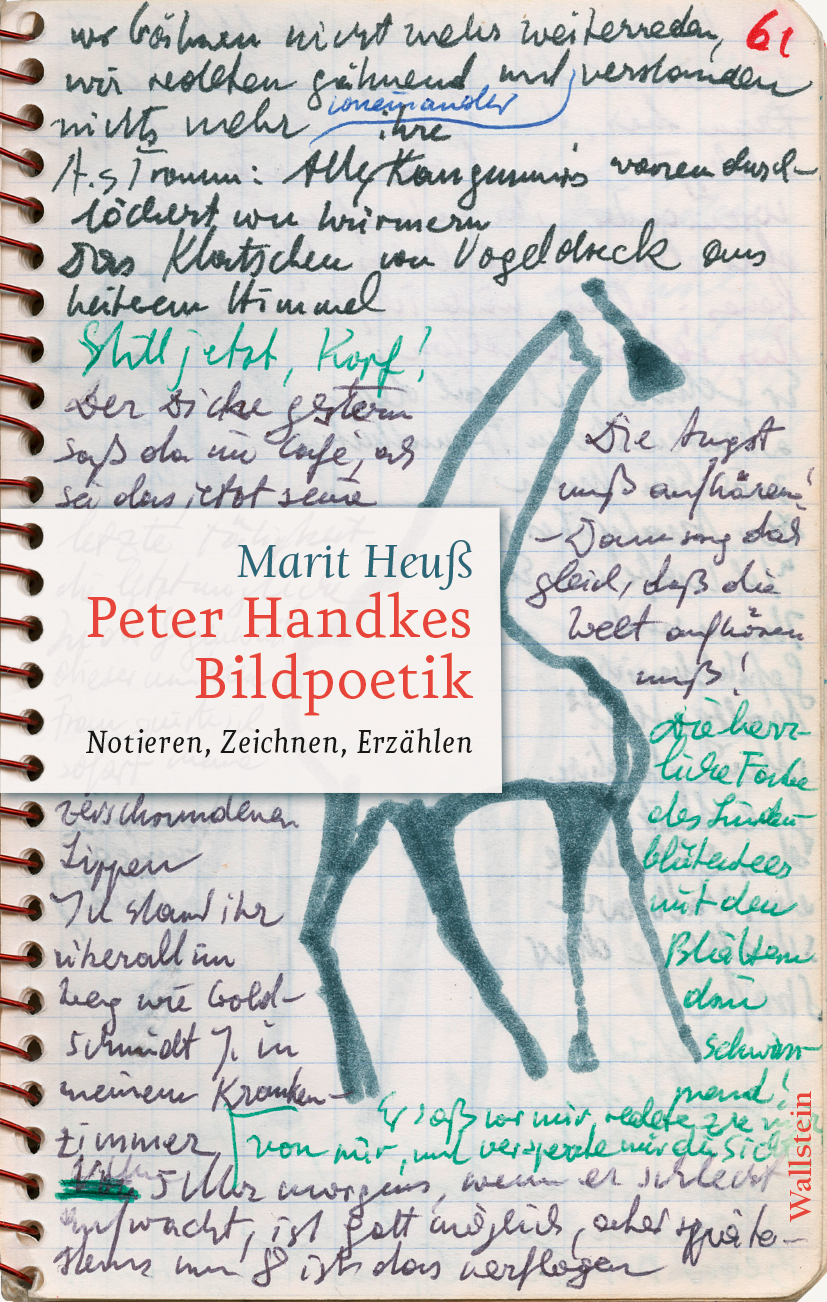 61
wir können nicht mehr weiterreden,
wir redeten gähnend und verstanden
voneinander
nichts mehr
ihre
A.s Traum: Alle Kängurus waren durch-
löchert von Würmern
Das Klatschen von Vogeldreck aus
heiterem Himmel
Still jetzt, Kopf!
Der Dicke gestern
saß da im Café, als
sei das jetzt seine
Die Angst
muß aufhören!
– Dann sag doch
gleich, daß die
Welt aufhören
muß!
Marit Heuß
Peter Handkes
Bildpoetik
Notieren, Zeichnen, Erzählen
Die herr-
liche Farbe
des Linden-
blütentees
mit den
Blättern
drin
schwim-
mend!
verschwundenen
Lippen
Ich stand ihr
überall im
Weg wie Gold-
schmidt J. in
meinem Kranken-
zimmer
Er saß vor mir, redete zu mir
von mir, und versperrte mir die Sicht
5 Uhr morgens, wenn er schlecht
aufwacht, ist Gott möglich, aber späte-
stens um 8 ist das verflogen
Wallstein